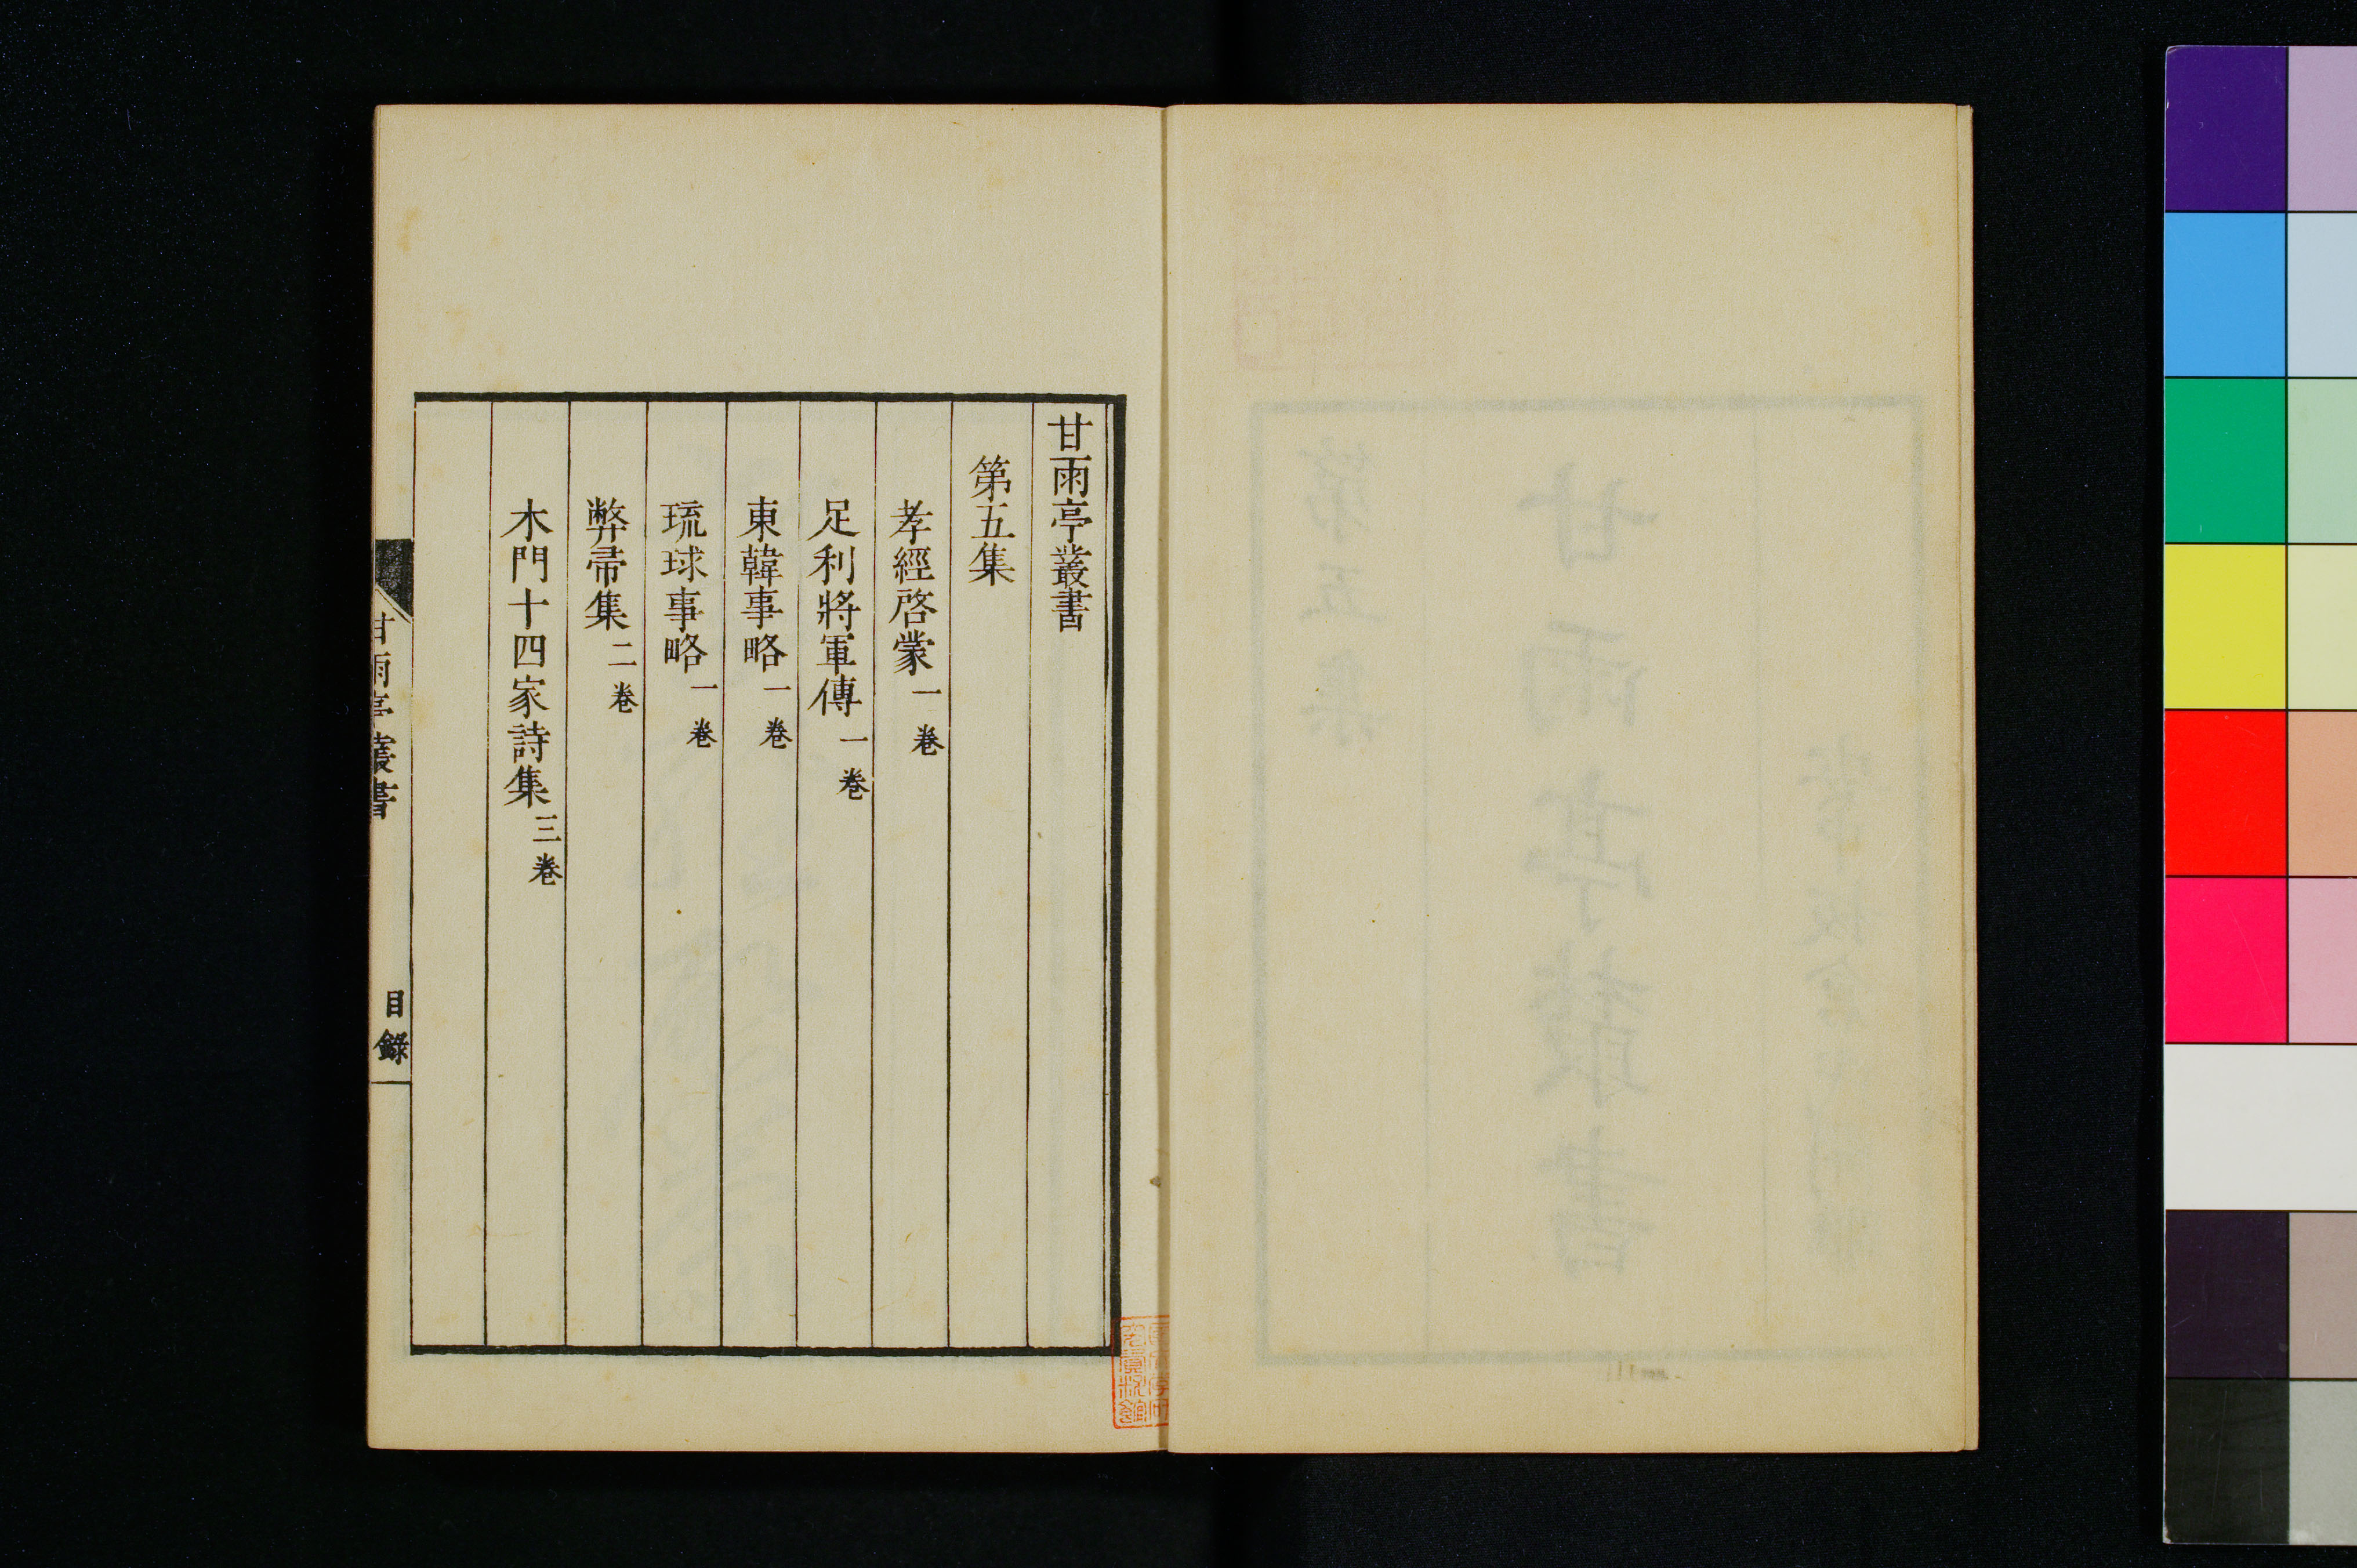 甘雨亭叢書
第五集
孝經啓蒙 一卷
足利將軍傳 一卷
東韓事略 一卷
琉球事略 一卷
弊帚集 二卷
木門十四家詩集 三卷
甘雨亭叢書
目錄